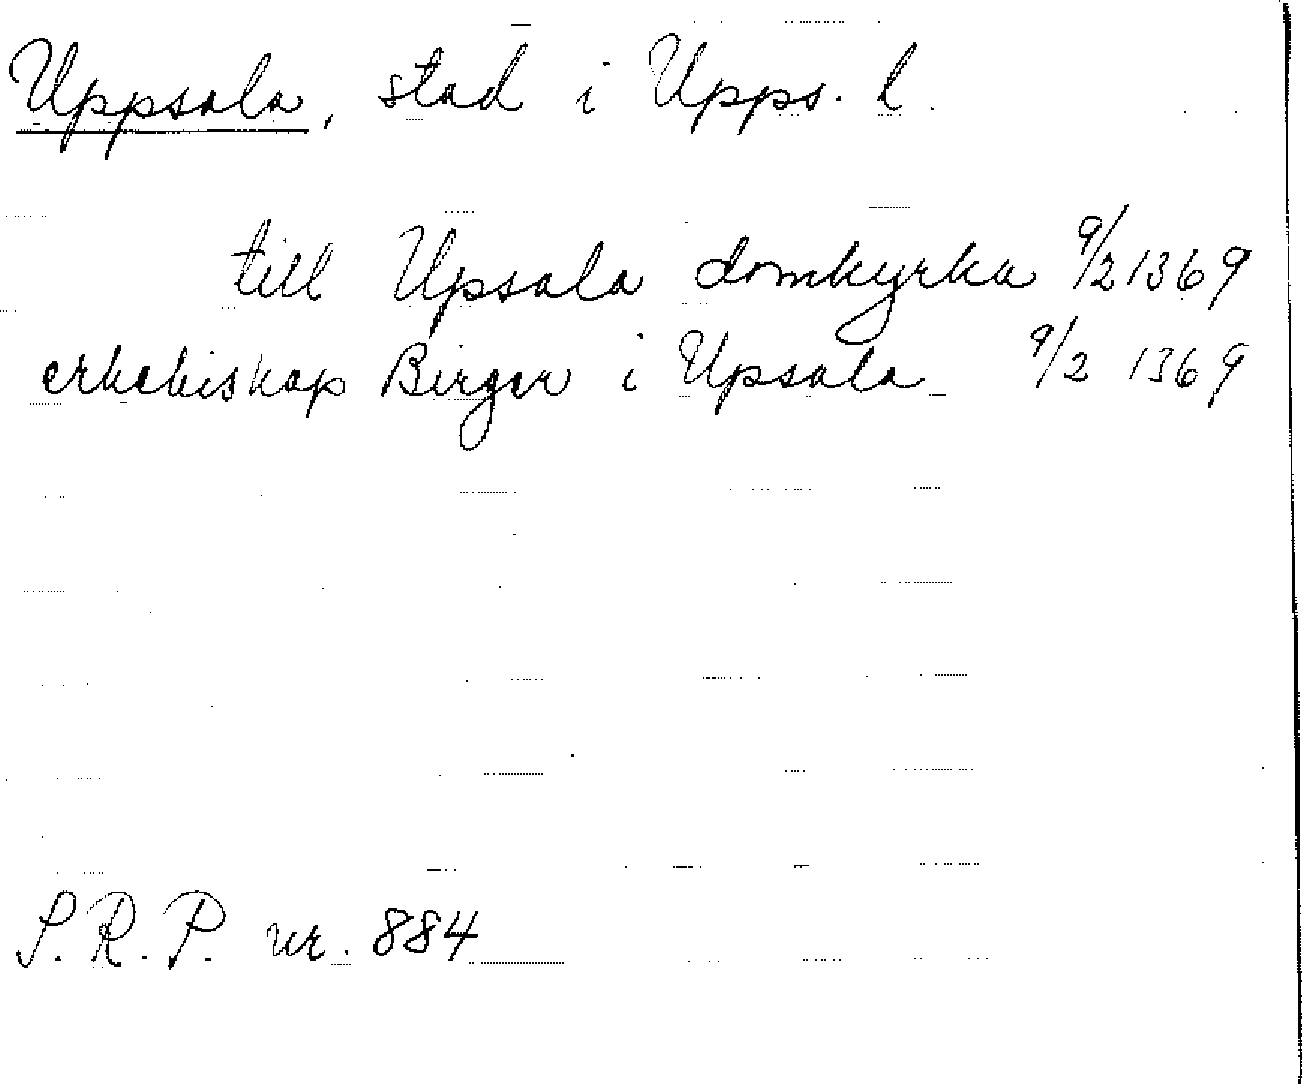 Uppsala, stad i Upps. l.
till Upsala domkyrka 9/2 1369
erkebiskop Birger i Upsala 9/2 1369
S.R.P. nr. 884